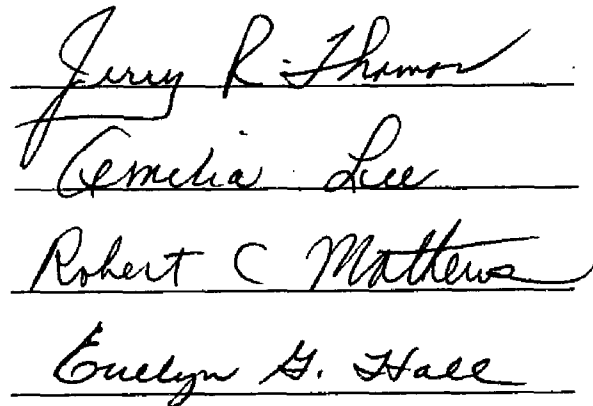 Jerry R. Thomas
Amelia Lee
Robert C Mathews
Evelyn G. Hall